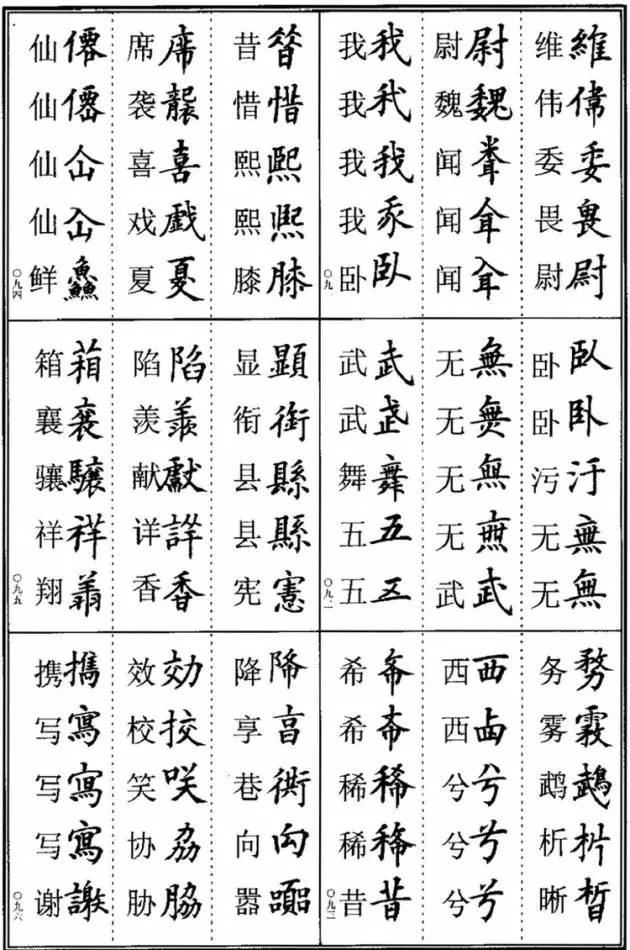 维維 伟偉 委委 畏畏 尉尉
尉尉 魏魏 闻 闻 闻
我我 我我 我我 我 卧卧
〇九一
卧臥 卧卧 污汙 无無 无無
无無 无無 无無 无無 武武
武武 武 舞舞 五五 五五
〇九二
务務 雾 鹉鵡 析 晰晳
西西 西卤 兮兮 兮兮 兮兮
希 希 稀稀 稀 昔昔
〇九三
昔 惜惜 熙熙 熙熈 膝膝
席席 袭襲 喜喜 戏戲 夏夏
仙僊 仙僊 仙仚 仙仚 鲜鱻
〇九四
显顯 衔銜 县縣 县縣 宪憲
陷陷 羡羨 献獻 详詳 香香
箱箱 襄襄 骧驤 祥祥 翔
〇九五
降降 享亯 巷衖 向向 嚣嚻
效効 校挍 笑咲 协劦 胁脇
携攜 写寫 写寫 写寫 谢謝
〇九六